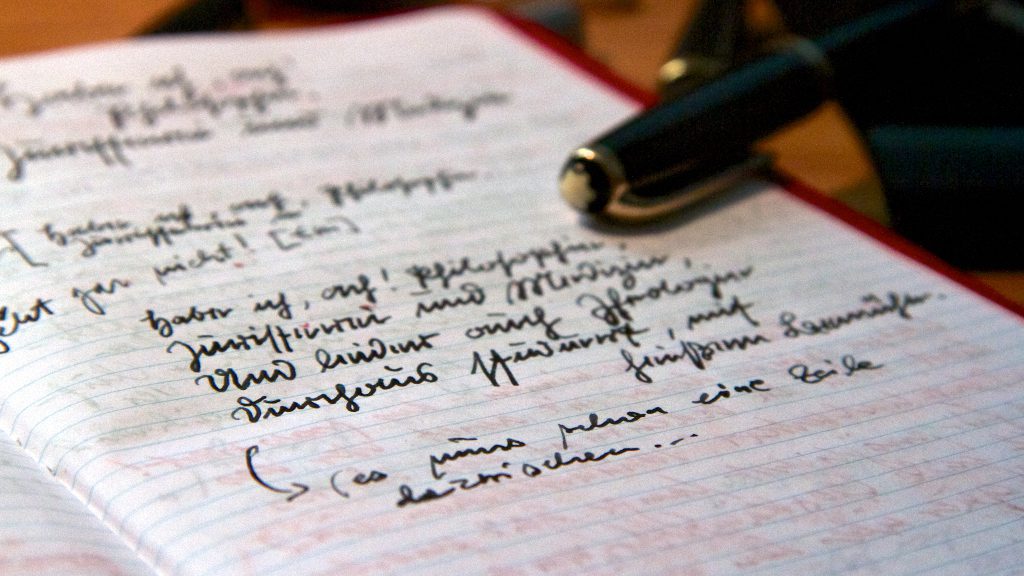 Habe ich, ach
Philosophie
Juristerei und Medizin
Habe ich, ach, Philosophie
Juristerei
gar nicht!
Habe ich, ach! Philosophie,
Juristerei und Medizin,
Und leider auch Theologie
Durchaus studiert, mit
heißem Bemühn.
(es muss schon eine Zeile
dazwischen...